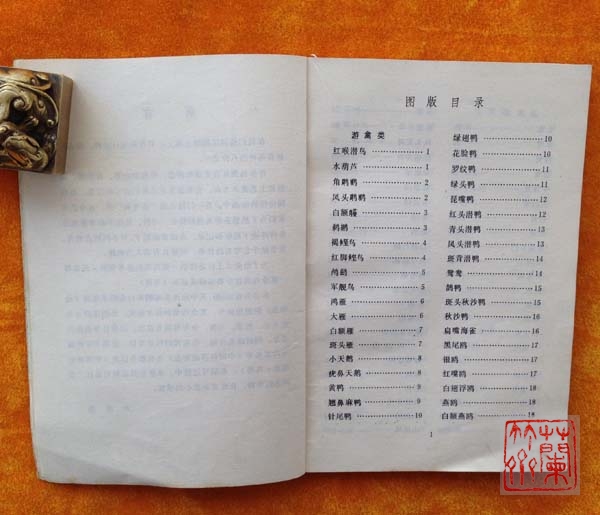 图版目录
游禽类
红喉潜鸟………………1
水葫芦………………1
角䴙䴘………………2
凤头䴙䴘………………2
白额鹱………………3
鹈鹕………………3
褐鲣鸟………………4
红脚鲣鸟………………4
鸬鹚………………5
军舰鸟………………5
鸿雁………………6
大雁………………6
白额雁………………7
斑头雁………………7
小天鹅………………8
疣鼻天鹅………………8
黄鸭………………9
翘鼻麻鸭………………9
针尾鸭………………10
绿翅鸭………………10
花脸鸭………………10
罗纹鸭………………11
绿头鸭………………11
琵嘴鸭………………12
红头潜鸭………………12
青头潜鸭………………13
凤头潜鸭………………13
斑背潜鸭………………14
鸳鸯………………14
鹊鸭………………15
斑头秋沙鸭………………15
秋沙鸭………………16
扁嘴海雀………………16
黑尾鸥………………17
银鸥………………17
红嘴鸥………………17
白翅浮鸥………………18
燕鸥………………18
白额燕鸥………………18
1